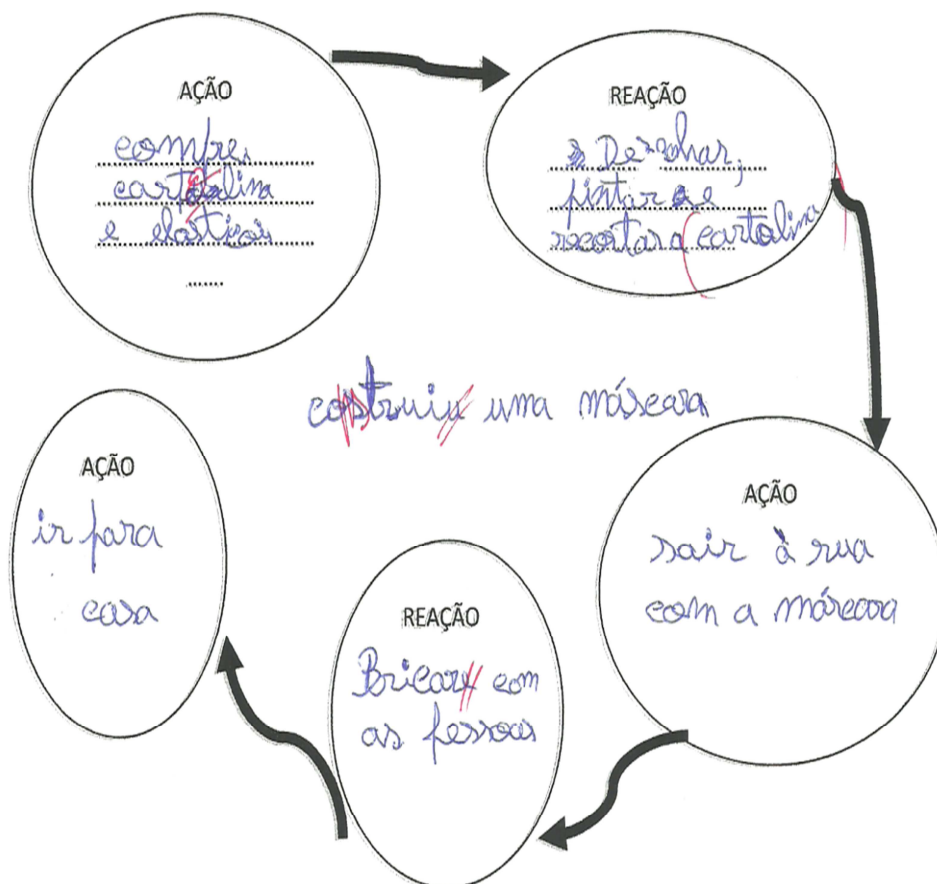 AÇÃO
compre,
cartolina
e elasticos
REAÇÃO
Desenhar,
pintar e
recortar a cartolina
construiu uma máscara
AÇÃO
sair à rua
com a máscara
REAÇÃO
Bricar com
as pessoas
AÇÃO
ir para
casa